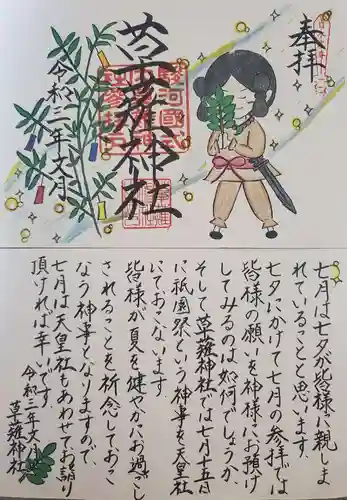 奉拝
草薙神社
令和三年文月
七月は七夕が皆様に親しま
れていることと思います。
七夕にかけて七月の参拝では
皆様の願いを神様にお預け
してみるのは如何でしょうか。
そして草薙神社では七月十五日
に祇園祭という神事を天皇社
にておこないます。
皆様が夏を健やかにお過ごし
されることを祈念しておこ
なう神事となりますので、
七月は天皇社もあわせてお詣り
頂ければ幸いです。
令和三年文月
草薙神社